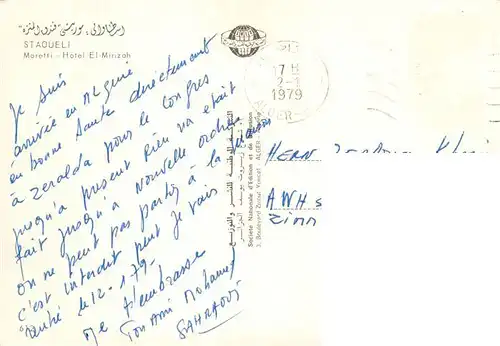 اسطاوالي، موريتي فندق المنتزه
STAOUELI
Moretti - Hotel El-Minzah
Je suis
arrivée en Algérie
en bonne santé directement
à zeralda pour le congres
jusqu'a present Rien n'a etait
fait jusqu'a Nouvelle ordre
on ne peut pas partir à la maison
c'est interdit peut je vais
Rentré le 12.1.79.
Je t'embrasse
Ton Ami Mohamed
SAHRAOUI
Société Nationale d'Edition et de Diffusion
3, Boulevard Zirout Youcef ALGER
7H
2-1
1979
ALGER
HERN
A.W.H.S
Zimm